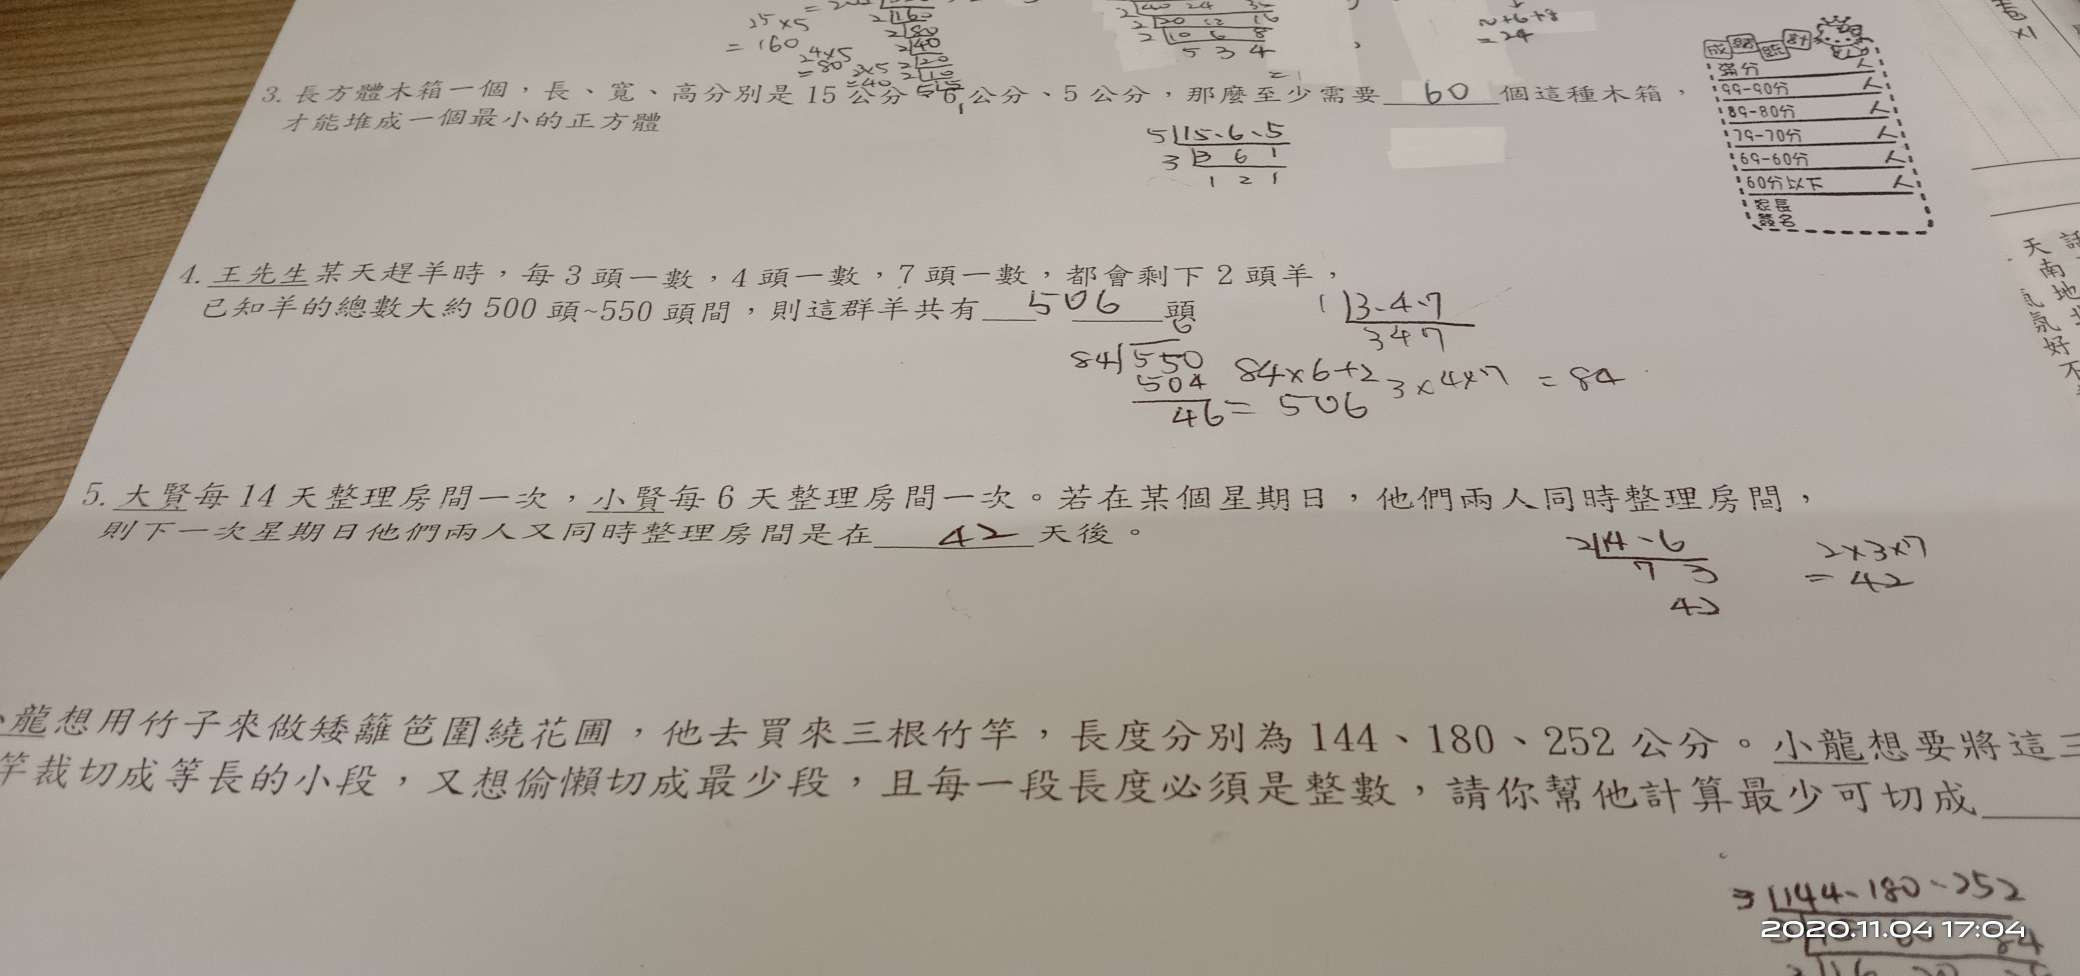 25×5
=160
24×5
=80
2×5
=40
2|160
2|80
2|40
2|20
2|10
5
2|40 24 32
2|20 12 16
2|10 6 8
5 3 4
=1
2+6+8
=24
卷
×1
成績統計
滿分 人
99-90分 人
89-80分 人
79-70分 人
69-60分 人
60分以下 人
家長
簽名
3. 長方體木箱一個，長、寬、高分別是 15 公分、6 公分、5 公分，那麼至少需要 60 個這種木箱，
才能堆成一個最小的正方體
5|15、6、5
3|3 6 1
1 2 1
4. 王先生某天趕羊時，每 3 頭一數，4 頭一數，7 頭一數，都會剩下 2 頭羊，
已知羊的總數大約 500 頭~550 頭間，則這群羊共有 506 頭
1|3、4、7
3 4 7
6
84)550
504
46
84×6+2
=506
3×4×7 = 84
5. 大賢每 14 天整理房間一次，小賢每 6 天整理房間一次。若在某個星期日，他們兩人同時整理房間，
則下一次星期日他們兩人又同時整理房間是在 42 天後。
2|14、6
7 3
42
2×3×7
=42
小龍想用竹子來做矮籬笆圍繞花圃，他去買來三根竹竿，長度分別為 144、180、252 公分。小龍想要將這三
竿裁切成等長的小段，又想偷懶切成最少段，且每一段長度必須是整數，請你幫他計算最少可切成
3|144、180、252
84
2020.11.04 17:04
天南地北
氣氛好